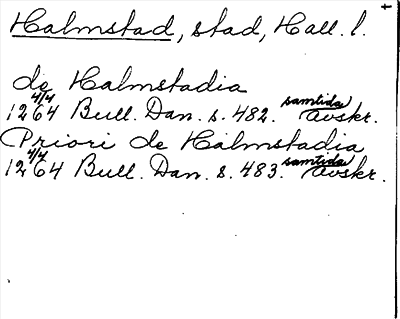 Halmstad, stad, Hall. l.
de Halmstadia
1264 4/4 Bull. Dan. s. 482. samtida avskr.
Priori de Halmstadia
1264 4/4 Bull. Dan. s. 483. samtida avskr.